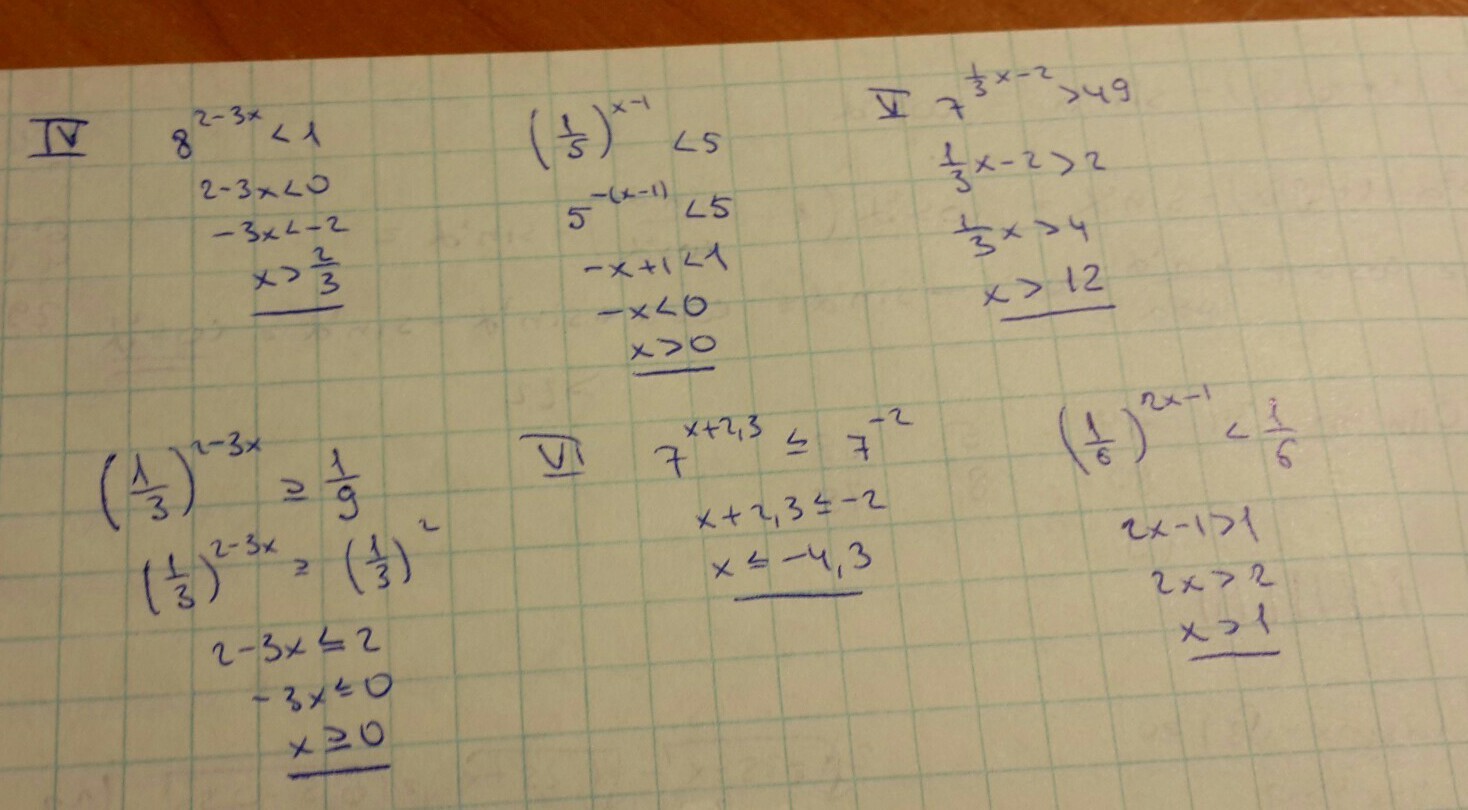 IV 8^{2-3x} < 1
2-3x < 0
-3x < -2
x > \frac{2}{3}
(\frac{1}{5})^{x-1} < 5
5^{-(x-1)} < 5
-x+1 < 1
-x < 0
x > 0
V 7^{\frac{1}{3}x-2} > 49
\frac{1}{3}x-2 > 2
\frac{1}{3}x > 4
x > 12
(\frac{1}{3})^{2-3x} ≥ \frac{1}{9}
(\frac{1}{3})^{2-3x} ≥ (\frac{1}{3})^2
2-3x ≤ 2
-3x ≤ 0
x ≥ 0
VI 7^{x+2,3} ≤ 7^{-2}
x+2,3 ≤ -2
x ≤ -4,3
(\frac{1}{6})^{2x-1} < \frac{1}{6}
2x-1 > 1
2x > 2
x > 1